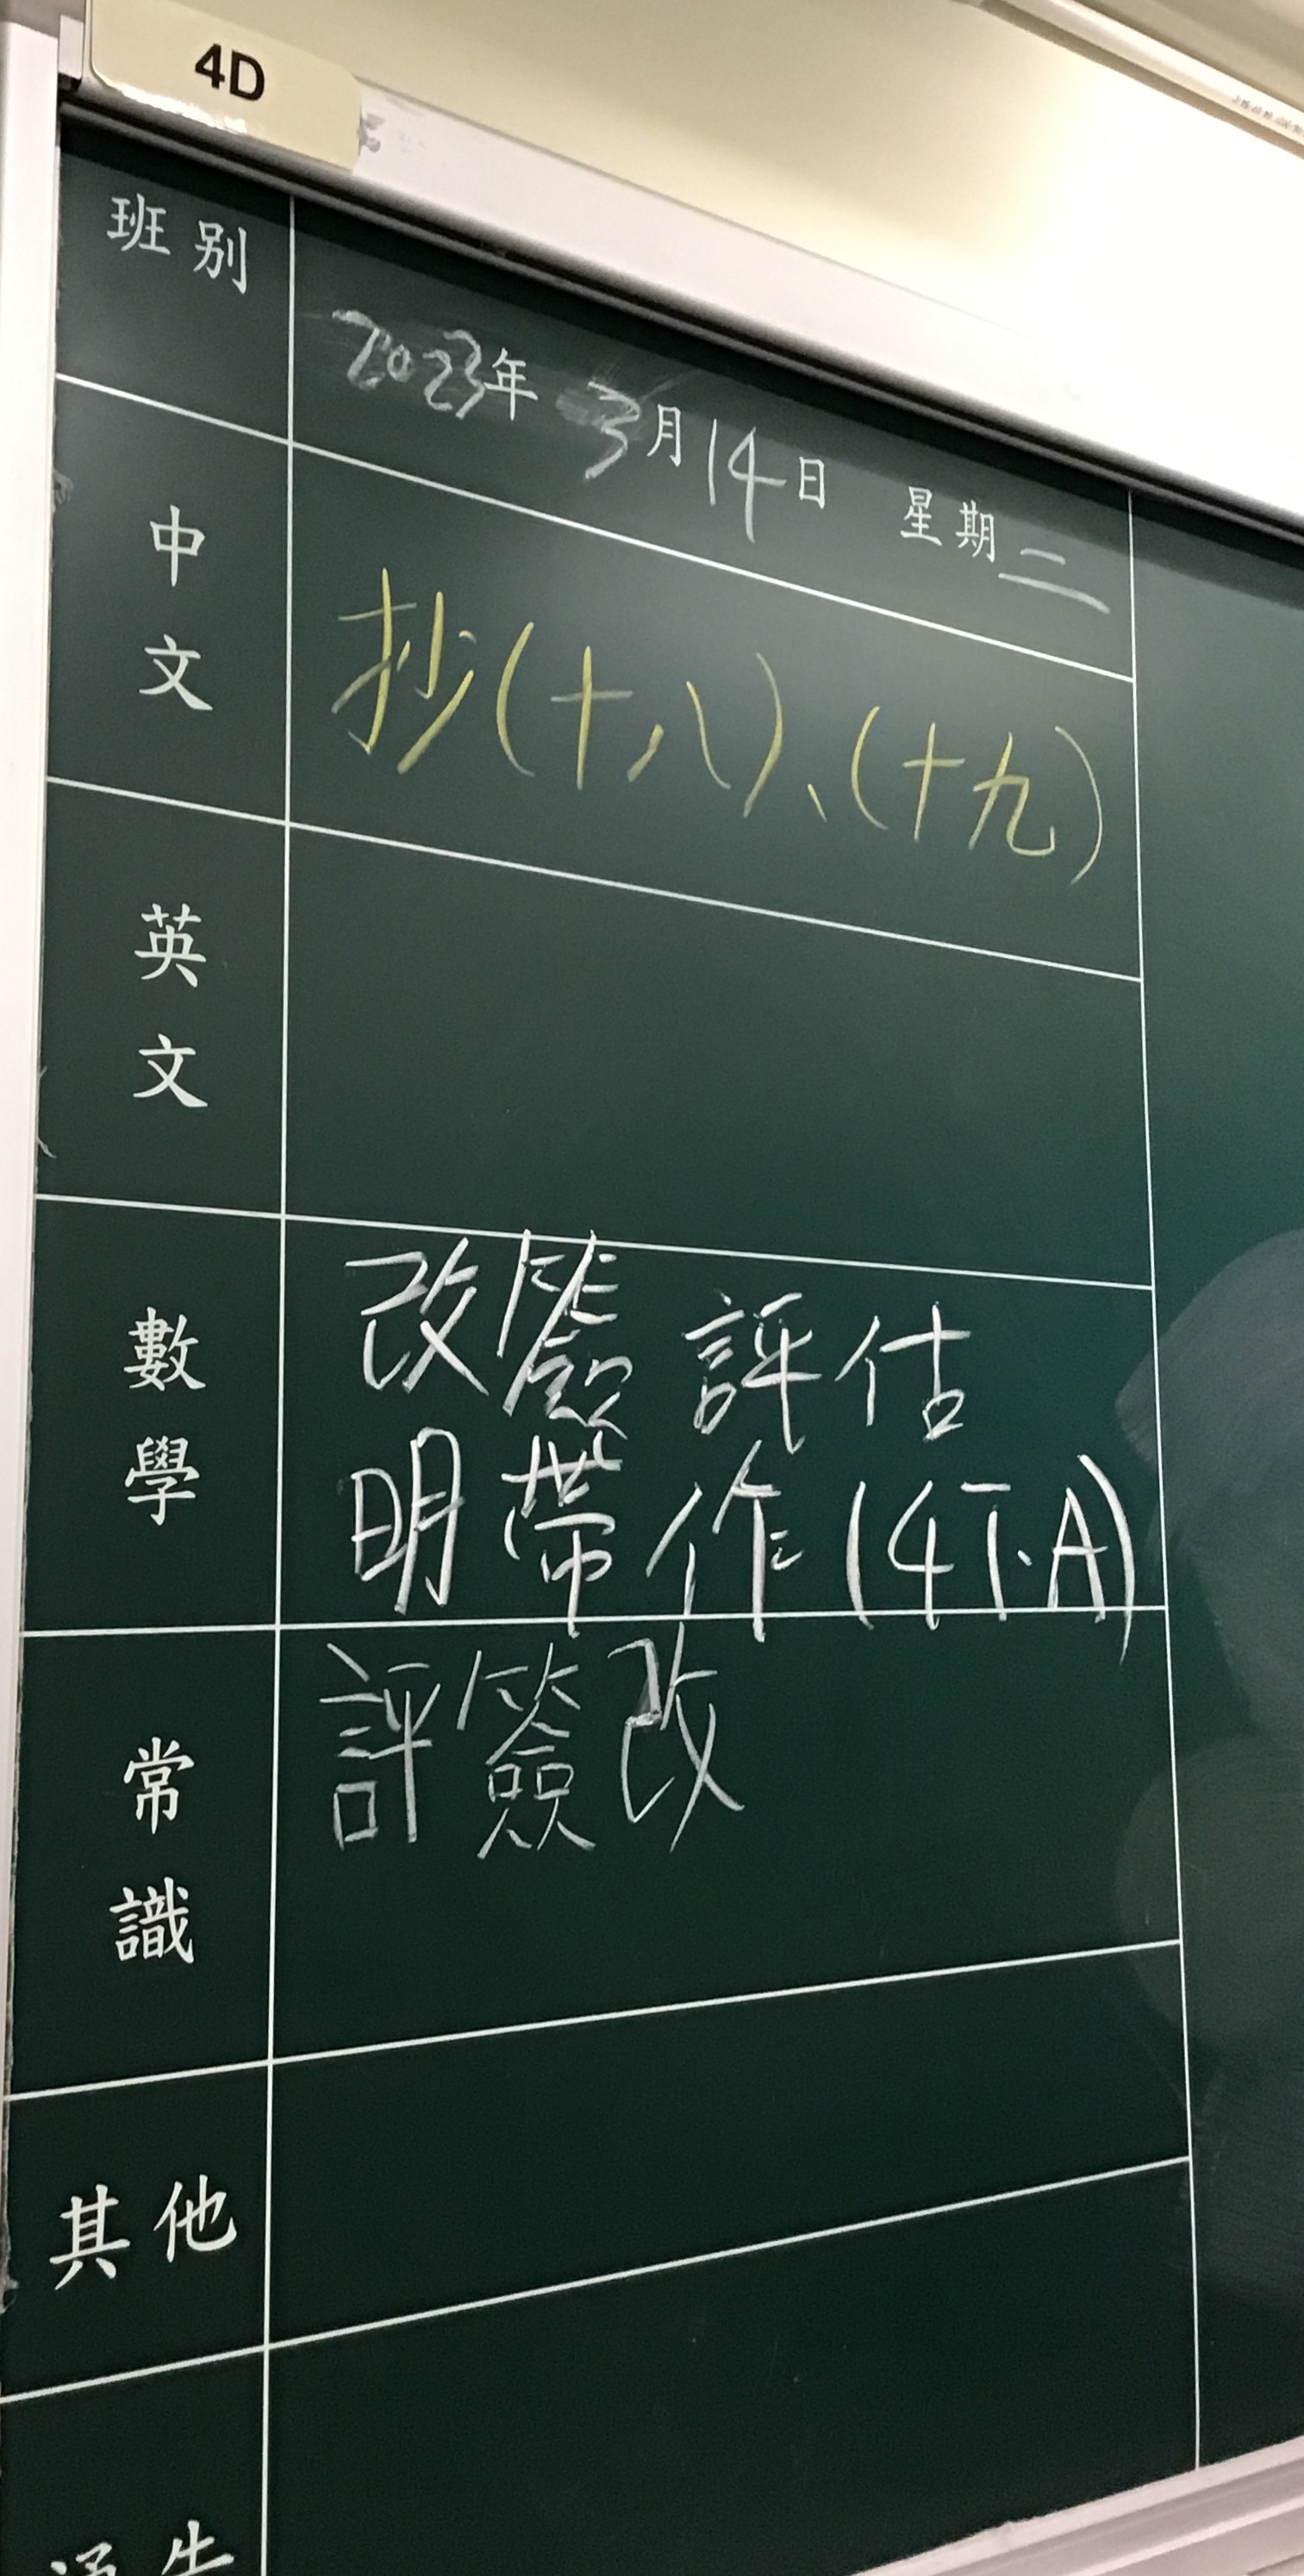 4D
班別
2023年3月14日 星期二
中文
抄(十八)、(十九)
英文
數學
改簽 評估
明帶作(4下.A)
常識
評簽改
其他
通告